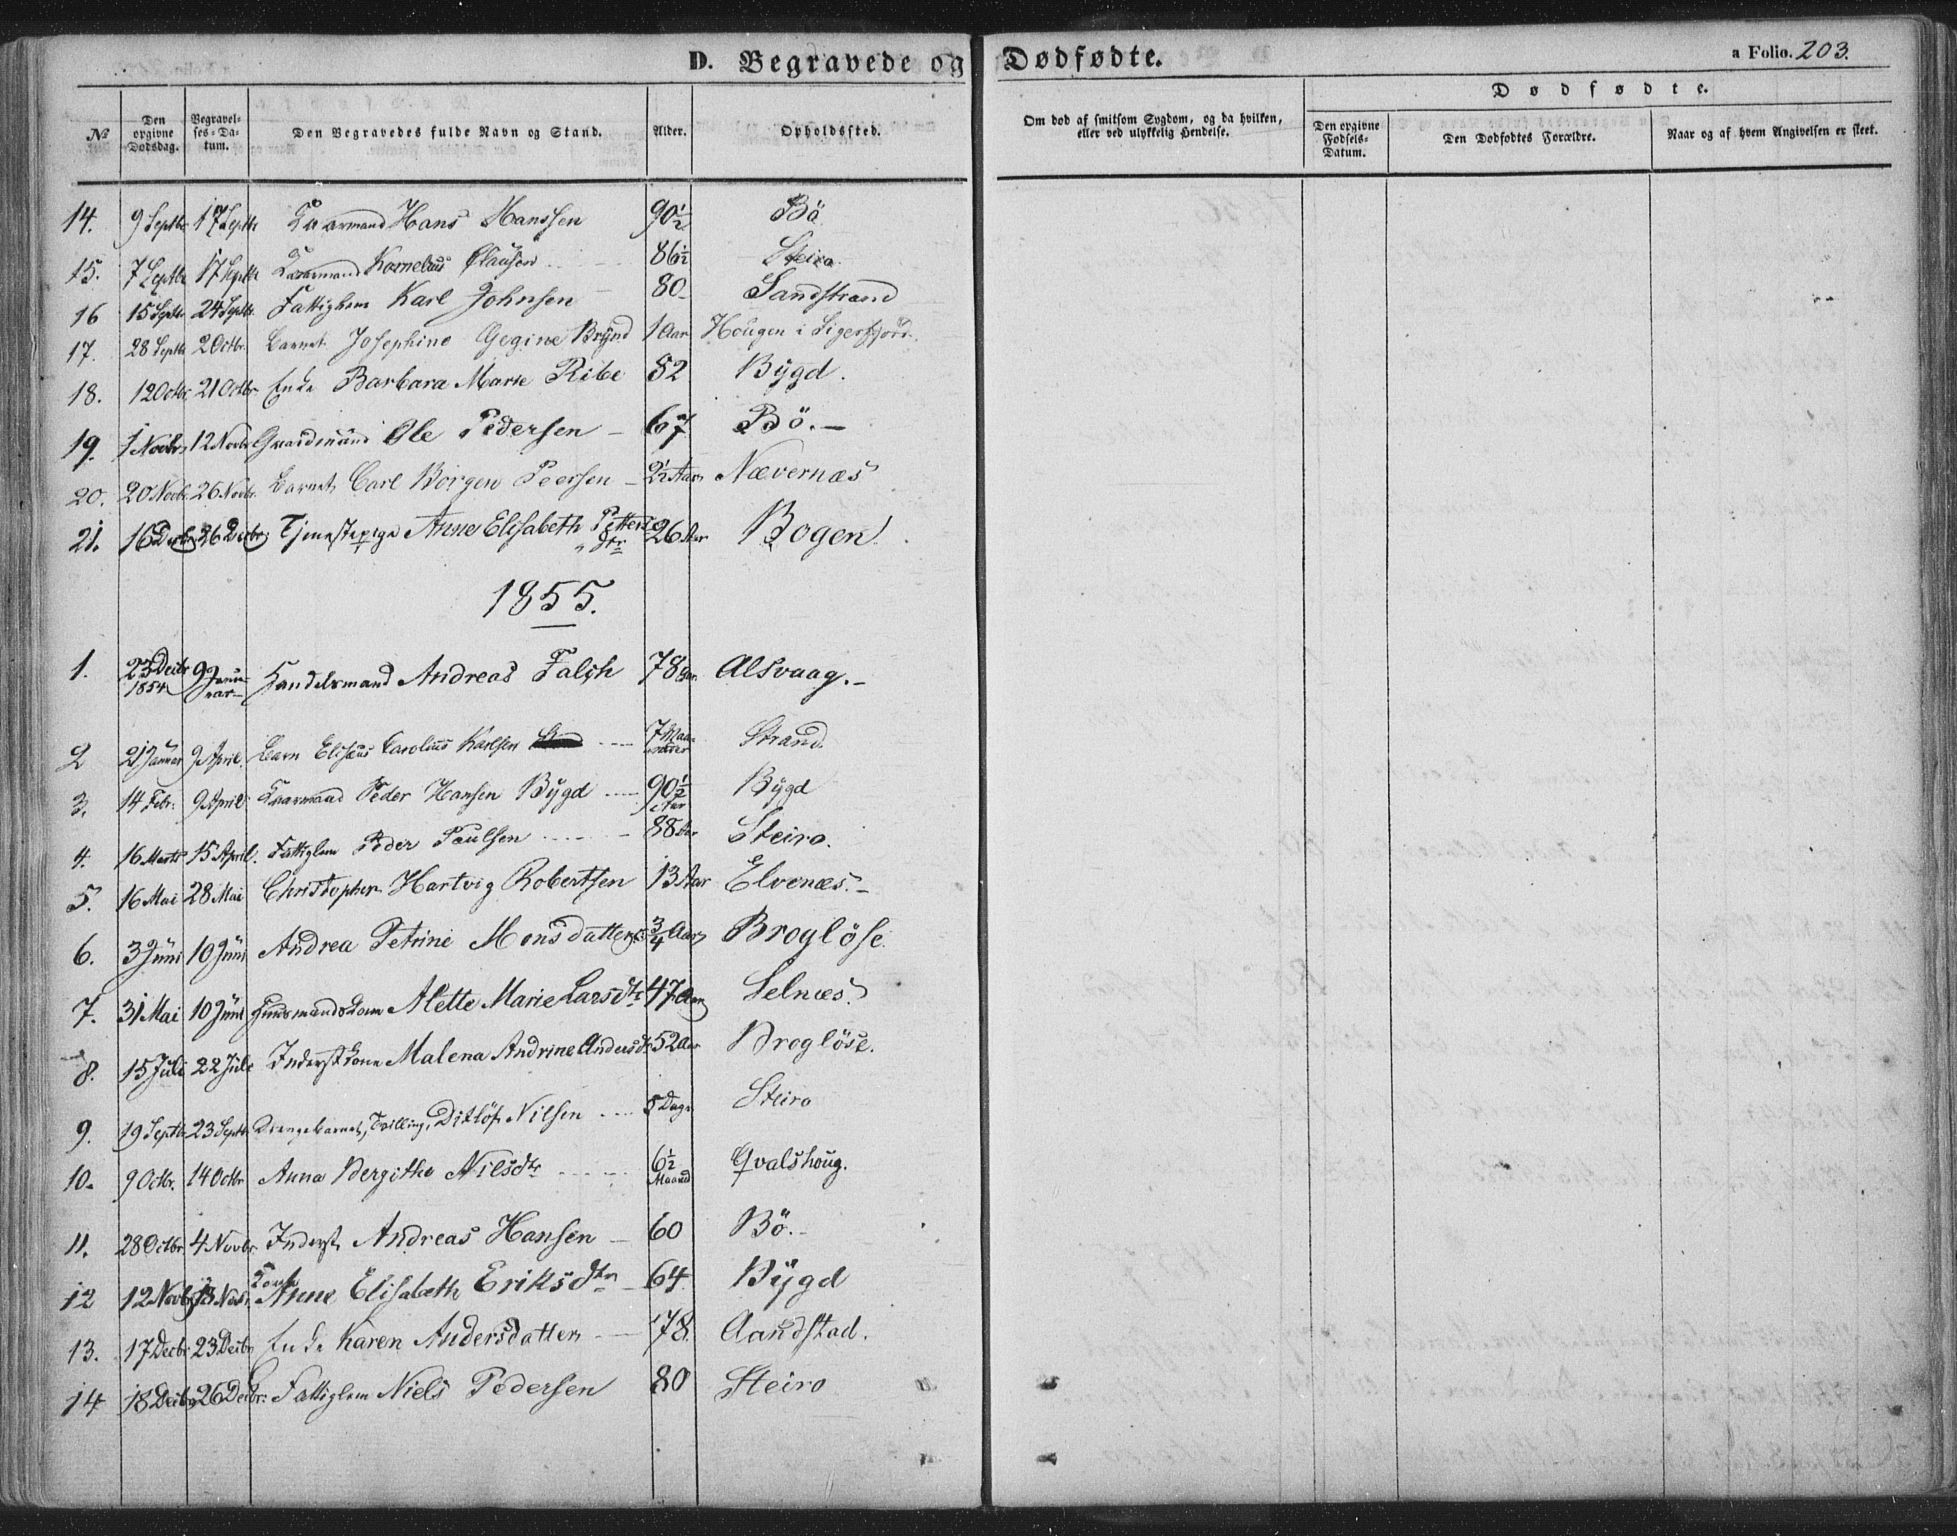 D. Begravede og Dødfødte.
a Folio. 203.
No
Den opgivne Dødsdag.
Begravelses-Datum.
Den Begravedes fulde Navn og Stand.
Alder.
Opholdssted.
Om død af smitsom Sygdom, og da hvilken, eller ved ulykkelig Hendelse.
Dødfødte.
Den opgivne Fødsels-Datum.
Den Dødfødtes Forældre.
Naar og af hvem Angivelsen er skeet.
14. 9 Septbr 17 Septbr Kaarmand Hans Hanssen 90½ Bö
15. 7 Septbr 17 Septbr Kaarmand Kornelius Olausen 86½ Steiro
16 15 Septbr 24 Septbr Fattiglem Karl Johnsen 80 Sandstrand
17. 28 Septbr 2 Octbr. Barnet Josephine Gegine Brynd 1 Aar Hougen i Sigerfjord.
18. 12 Octbr. 21 Octbr. Enke Barbara Marie Ribe 52 Bÿgd.
19. 1 Novbr. 12 Novbr Gaardmand Ole Pedersen 67 Bö.
20. 20 Novbr. 26 Novbr. Barnet Carl Borgen Peersen 2½ Aar Nævernæs
21. 16 Decbr. 26 Decbr. Tjenestepige Anne Elisabeth Petters Dtr 26 Aar Bogen
1855.
1. 23 Decbr 1854 9 Januar Handelsmand Andreas Falch 78 Aar. Alsvaag.
2 21 Januar 9 April. Barn Elisæus Carolius Karlsen 7 Maaneder Strand
3. 14 Febr. 9 April Kaarmand Peder Hansen Bÿgd 90½ Aar Bÿgd
4. 16 Marts 15 April. Fattiglem Peder Paulsen 88 Aar Steiro.
5. 16 Mai 28 Mai Christopher Hartvig Robertsen 13 Aar Elvenæs.
6. 3 Jüni 10 Jüni Andrea Petrine Monsdatter ¾ Aar Broglöse.
7. 31 Mai 10 Jüni Huusmandskone Alette Marie Larsdtr 47 Aar Selnæs.
8. 15 Juli 22 Juli Inderst Kone Malena Andrine Andersdtr 52 Aar Broglöse.
9. 19 Septbr 23 Septbr Drengebarnet, Tvilling, Ditlöf Nilsen 5 Dage Steiro
10. 9 Octbr. 14 Octbr Anna Bergithe Nilsdtr 6½ Maaned Qvalshoug.
11. 28 Octbr. 4 Novbr. Inderst Andreas Hansen 60 Bö.
12 12 Novbr 18 Novbr. Kone Anne Elisabeth Eriksdtr 64 Bÿgd
13. 17 Decbr. 23 Decbr Enke Karen Andersdatter 78. Aandstad.
14 18 Decbr 26 Decbr. Fattiglem Niels Pedersen 80 Steiro